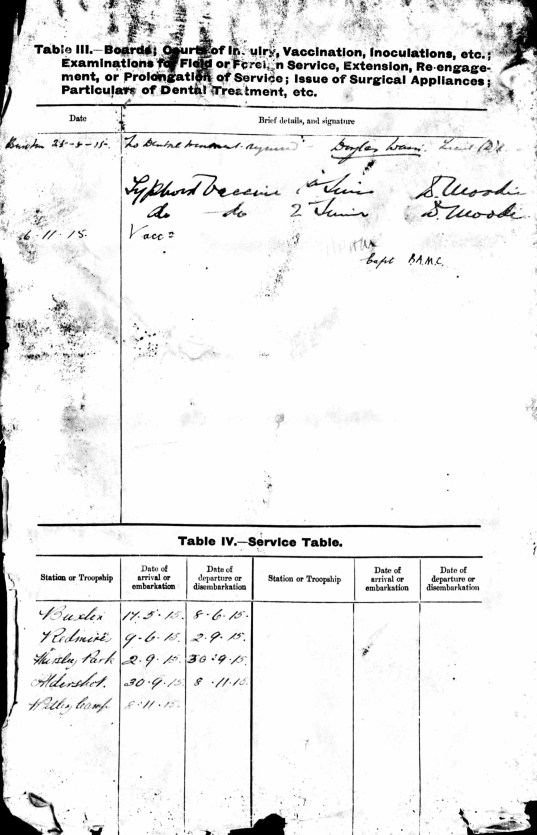 Table III.—Boards; Courts of Inquiry, Vaccination, Inoculations, etc.;
Examinations for Field or Foreign Service, Extension, Re-engage-
ment, or Prolongation of Service; Issue of Surgical Appliances;
Particulars of Dental Treatment, etc.
Date
Brief details, and signature
28-8-15. No Dental treatment required - Douglas Lieut
Typhoid Vaccine 1st D. Moodie
do do 2 D. Moodie
6.11.15. Vacc=
Capt R.A.M.C.
Table IV.—Service Table.
Station or Troopship Date of arrival or embarkation Date of departure or disembarkation Station or Troopship Date of arrival or embarkation Date of departure or disembarkation
Buxton 17.5.15. 8-6-15.
Redmires 9-6-15. 2.9.15.
Hursley Park 2.9.15. 30.9.15.
Aldershot. 30.9.15 8.11.15.
Witley Camp 8.11.15.